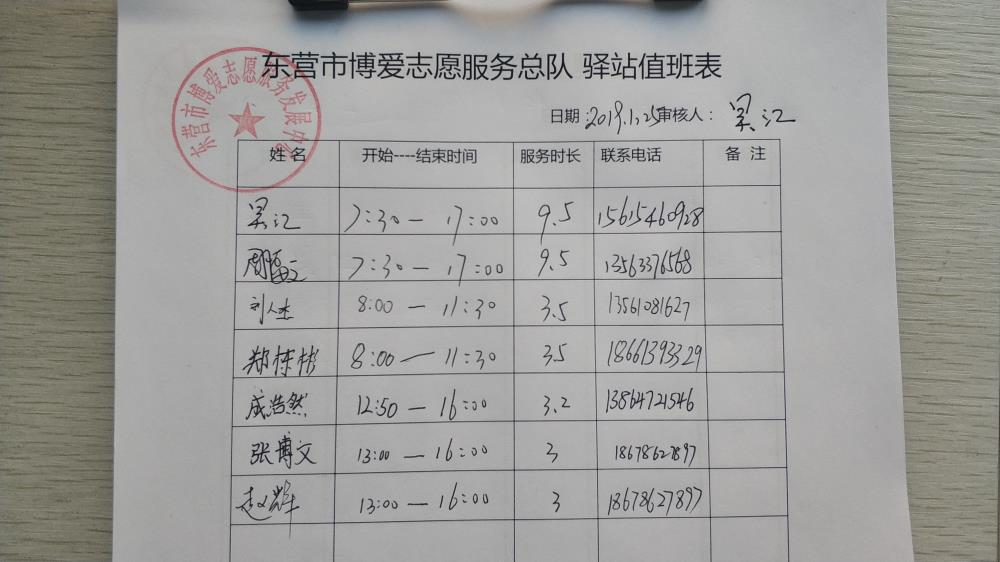 东营市博爱志愿服务总队 驿站值班表
东营市博爱志愿服务发展中心
日期：2019.1.25 审核人：吴江
姓名 开始----结束时间 服务时长 联系电话 备注
吴江 7:30—17:00 9.5 15615460928
7:30—17:00 9.5 13563376568
刘人杰 8:00—11:30 3.5 13561081627
郑栋彬 8:00—11:30 3.5 18661393329
成浩然 12:50—16:00 3.2 13864721546
张博文 13:00—16:00 3 18678627897
赵辉 13:00—16:00 3 18678627897